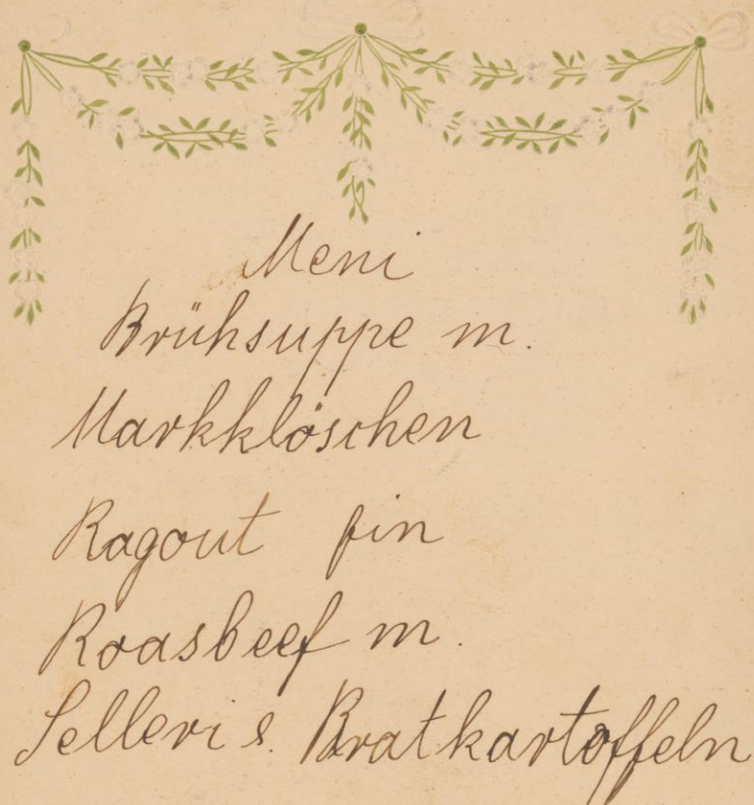 Meni
Brühsuppe m.
Markklöschen
Ragout fin
Roasbeef m.
Selleri &. Bratkartoffeln